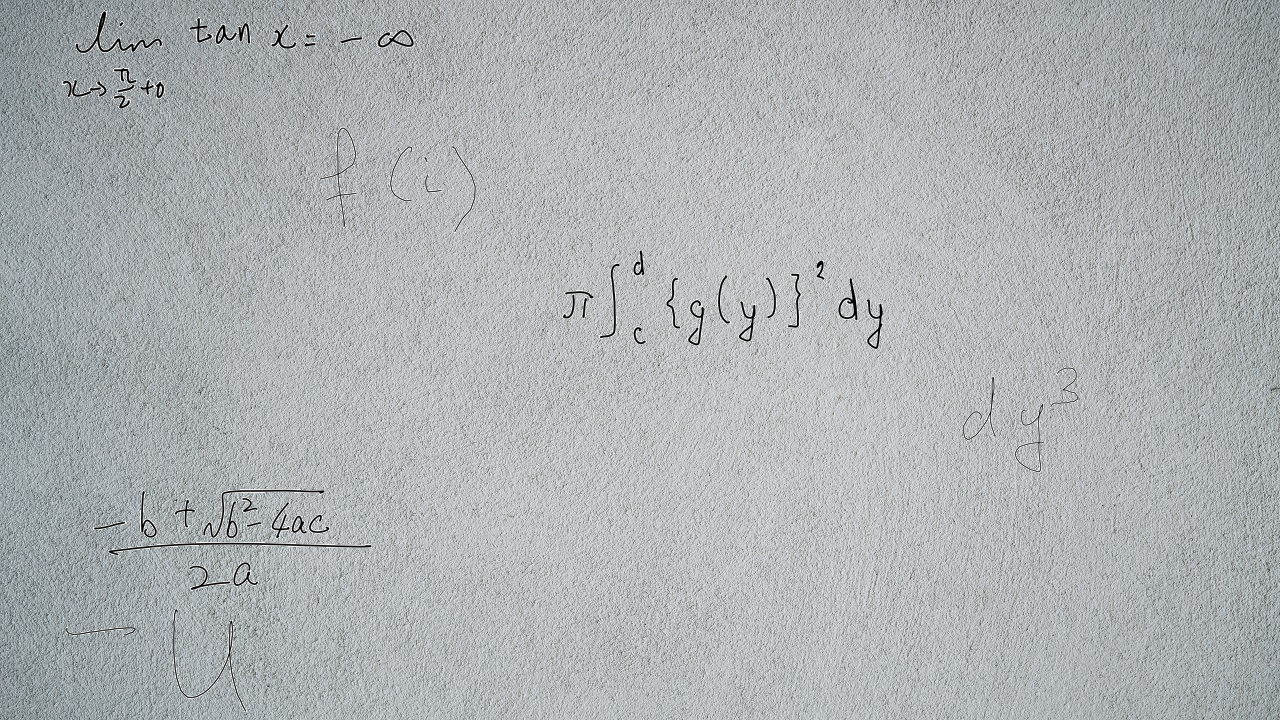 \lim_{x \to \frac{\pi}{2}+0} \tan x = -\infty
f(i)
\pi \int_{c}^{d} \{g(y)\}^{2} dy
dy^{3}
\frac{-b+\sqrt{b^{2}-4ac}}{2a}
-U